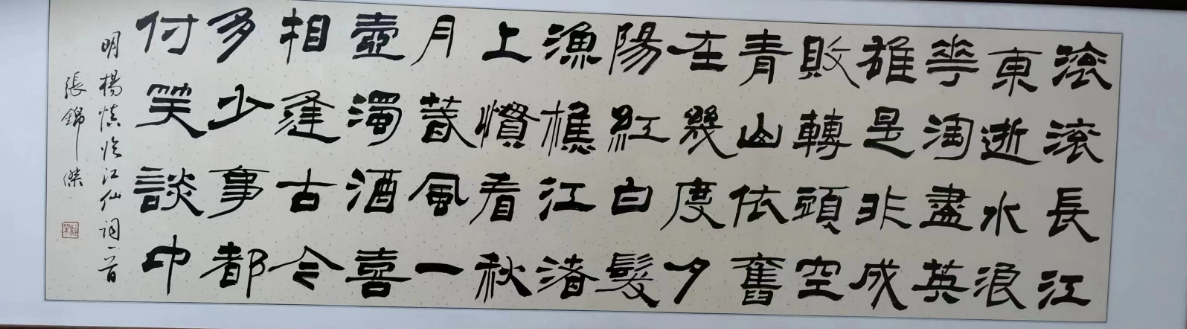 滚滚長江
東逝水浪
華淘盡英
雄是非成
敗轉頭空
青山依舊
在幾度夕
陽紅白髮
漁樵江渚
上慣看秋
月春風一
壺濁酒喜
相逢古今
多少事都
付笑談中
明楊慎臨江仙詞一首
張錦傑